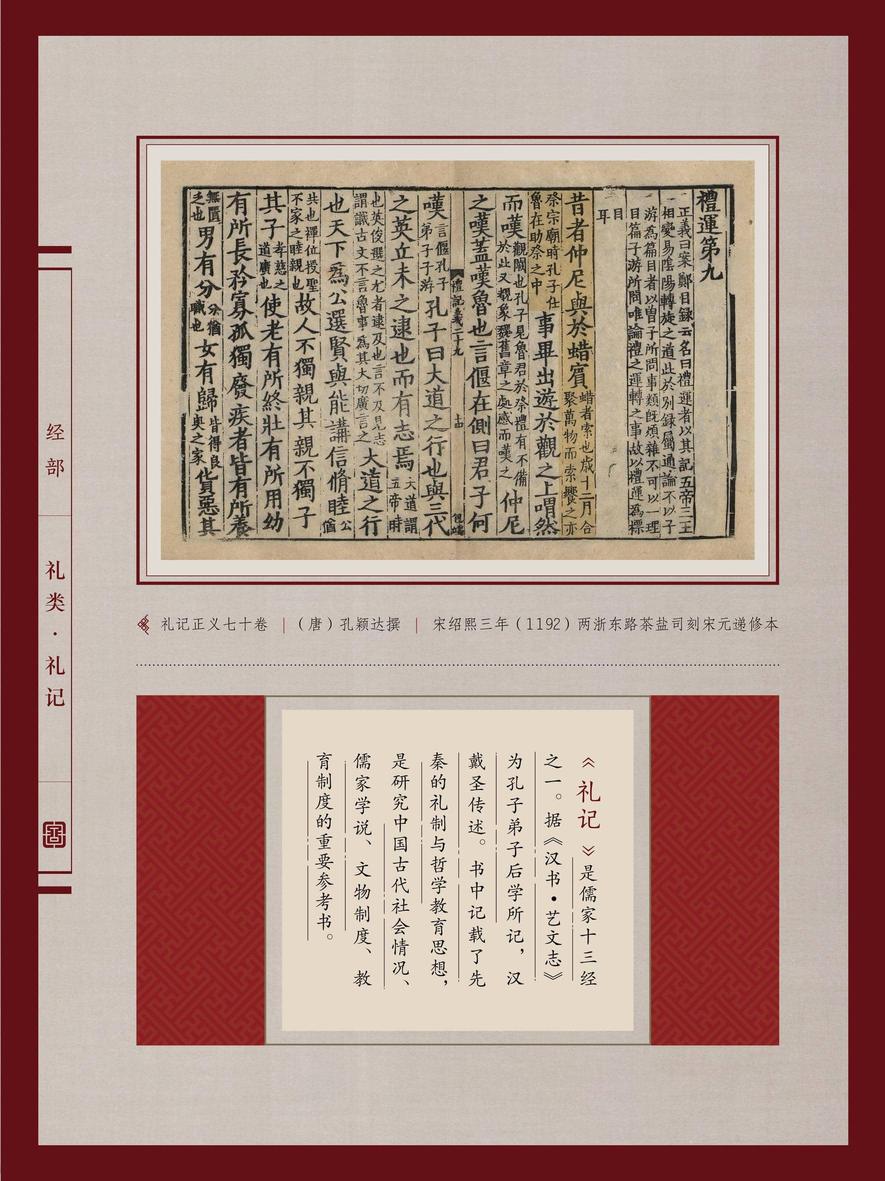 禮運第九
正義曰案鄭目録云名曰禮運者以其記五帝三王
相變易陰陽轉旋之道此於別録屬通論不以子
游為篇目者以曽子所問事類既煩雜不可以一理
目篇子游所問唯論禮之運轉之事故以禮運為標
目耳
昔者仲尼與於蜡賓蜡者索也歳十二月合聚萬物而索饗之亦
祭宗廟時孔子仕魯在助祭之中事畢出遊於觀之上喟然
而嘆觀闕也孔子見魯君於祭禮有不備於此又覩象魏舊章之處感而嘆之仲尼
之嘆蓋嘆魯也言偃在側曰君子何
嘆言偃孔子弟子子游孔子曰大道之行也與三代
禮記義二十九
之英丘未之逮也而有志焉大道謂五帝時
也英俊選之尤者逮及也言不及見志謂識古文不言魯事為其大切廣言之大道之行
也天下爲公選賢與能講信脩睦公猶
共也禪位授聖不家之睦親也故人不獨親其親不獨子
其子孝慈之道廣也使老有所終壯有所用幼
有所長矜寡孤獨廢疾者皆有所養
無匱乏也男有分分猶職也女有歸皆得良奧之家貨惡其
经部
礼类·礼记
礼记正义七十卷 |（唐）孔颖达撰 | 宋绍熙三年（1192）两浙东路茶盐司刻宋元递修本
《礼记》是儒家十三经
之一。据《汉书·艺文志》
为孔子弟子后学所记，汉
戴圣传述。书中记载了先
秦的礼制与哲学教育思想，
是研究中国古代社会情况、
儒家学说、文物制度、教
育制度的重要参考书。